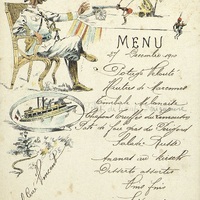 MENU
27 Décembre 1900
Potage Velouté
Huîtres de Marennes
Timbale Milanaise
Chapons truffés du
Pâté de foie gras du Périgord
Salade Russe
Ananas au kirsch
Desserts assortis
Vins fins